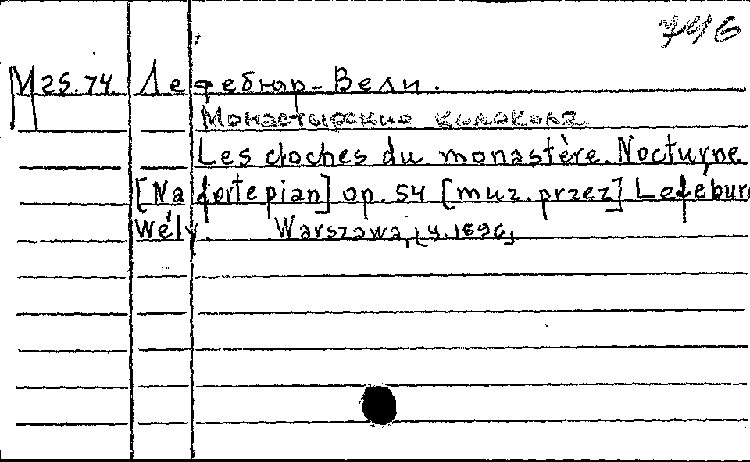 746
M 25.74 Лефебюр-Вели.
Монастырские колокола
Les cloches du monastère. Nocturne
[Na fortepian] op. 54 [muz. przez] Lefebure
Wély. Warszawa, [4.1896]